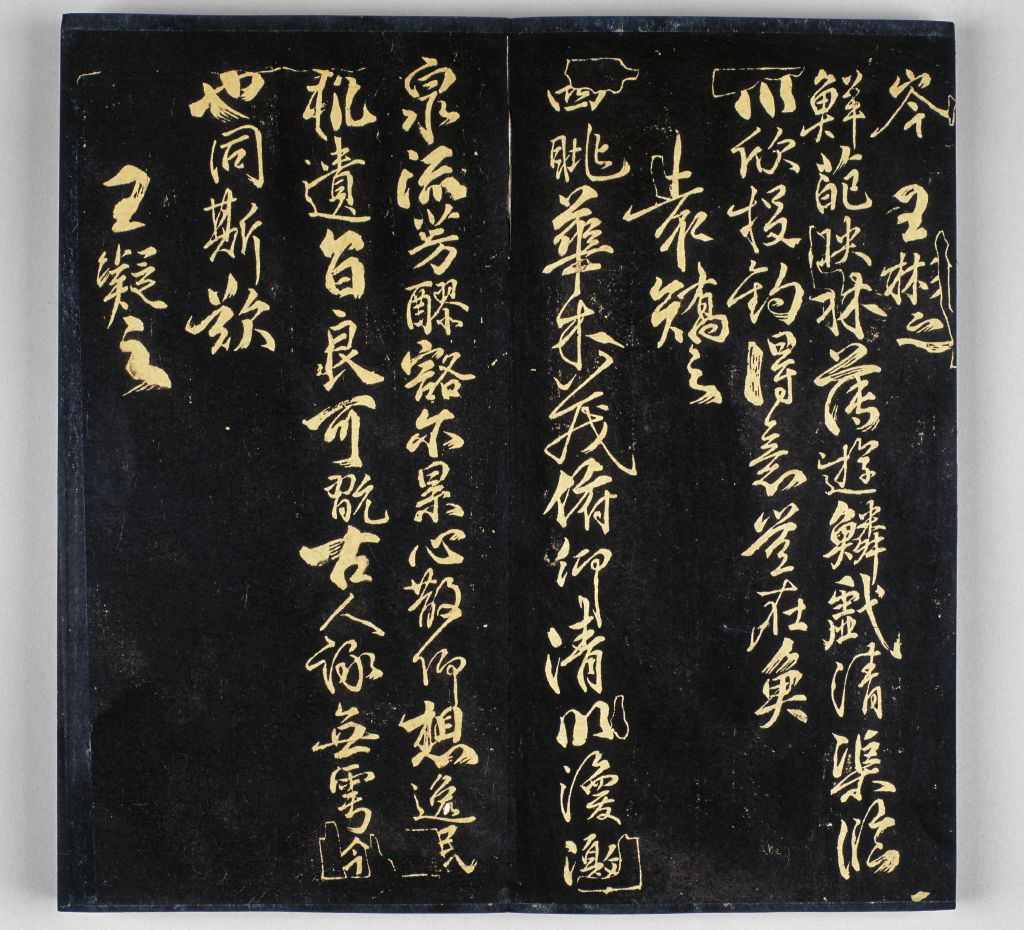 岑 王彬之
鮮葩映林薄遊鱗戲清渠臨
川欣投釣得意豈在魚
袁矯之
四眺華木茂俯仰清川渙激
泉流芳醪豁尔累心散仰想逸民
軌遺音良可翫古人詠無雩今
也同斯歡
王凝之